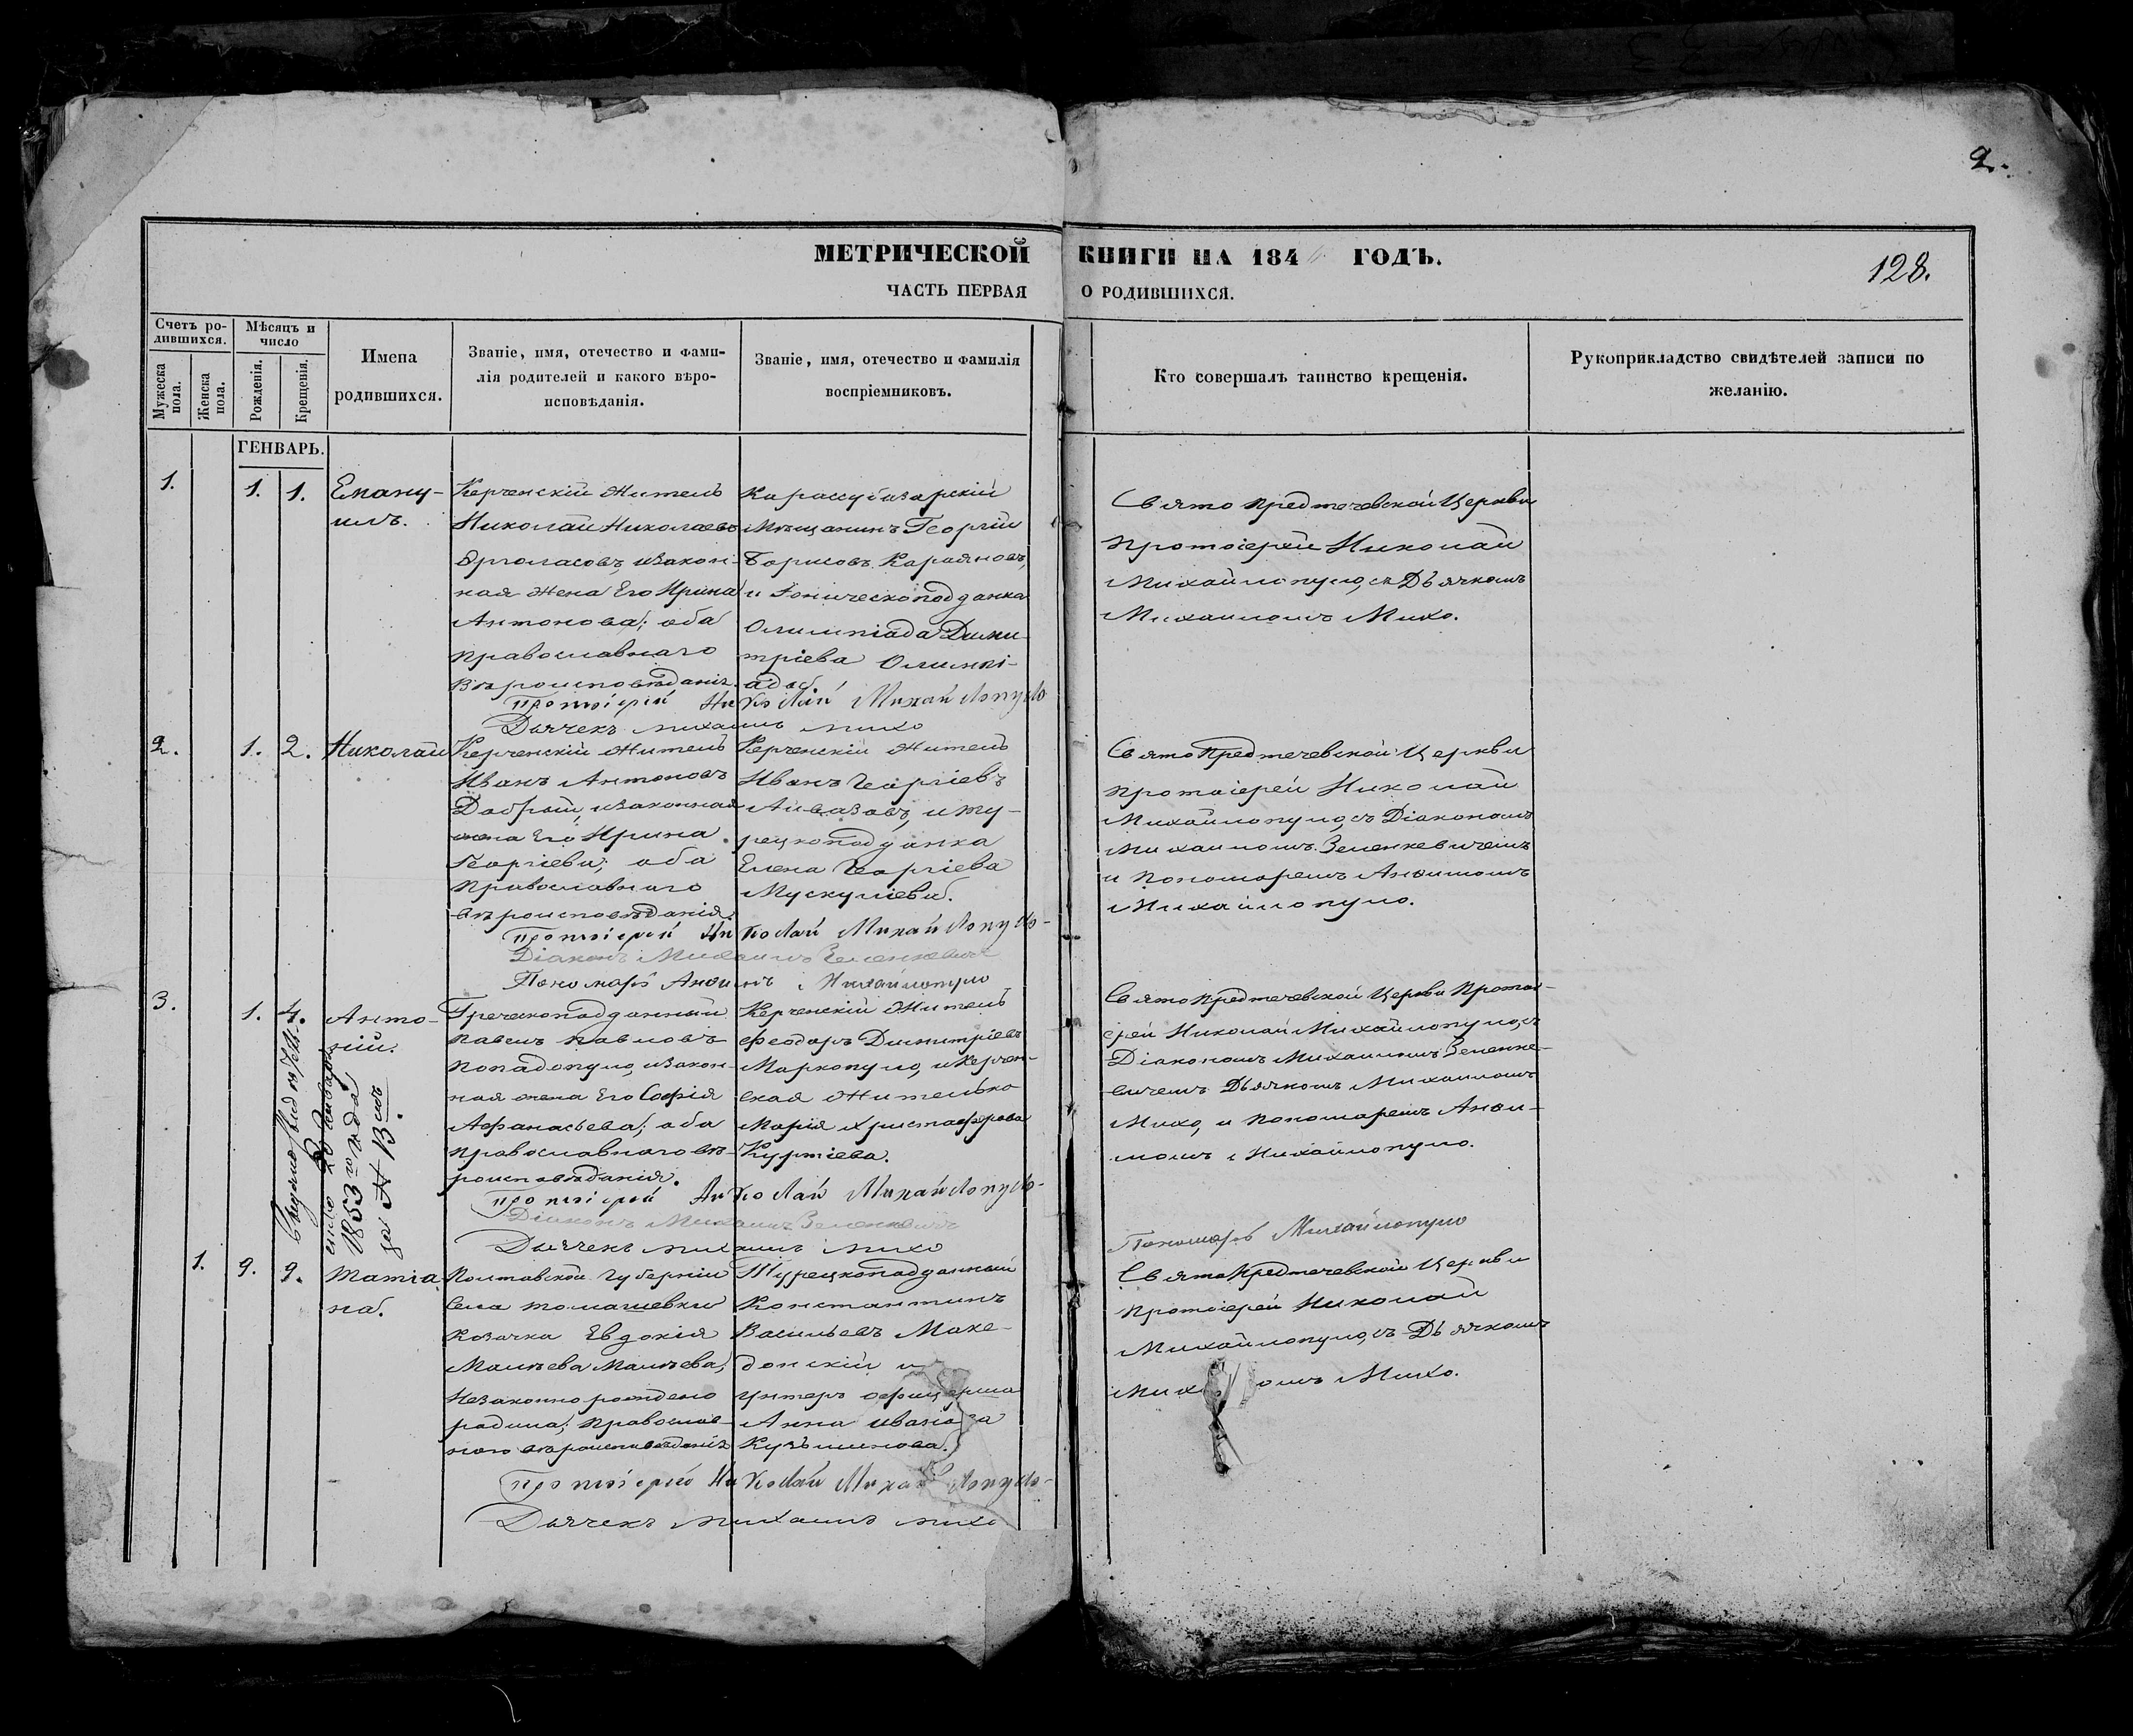 2.
128.
МЕТРИЧЕСКОЙ КНИГИ НА 184 ГОДЪ.
ЧАСТЬ ПЕРВАЯ О РОДИВШИХСЯ.
Счетъ ро-
дившихся.
Мужеска
пола.
Женска
пола.
Мѣсяцъ и
число
Рожденія.
Крещенія.
Имена
родившихся.
Званіе, имя, отечество и фами-
лія родителей и какого вѣро-
исповѣданія.
Званіе, имя, отечество и фамилія
воспріемниковъ.
Кто совершалъ таинство крещенія.
Рукоприкладство свидѣтелей записи по
желанію.
ГЕНВАРЬ.
1.
1.
1.
Емануи-
илъ.
Керченскій житель
Николай Николаевъ
законн-
ная жена Его Ирина
Антонова; оба
православнаго
вѣроисповѣданія.
Карасубазарскій
Мѣщанинъ Георгій
Борисовъ Караяновъ,
и Іоническоподданка
Олимпіада Дими-
тріева Олимпі-
ада.
Свято Предтечевской Церкви
Протоіерей Николай
Михайлопуло, съ Дьячкомъ
Михаиломъ Михо.
Протоіерей Николай Михайлопуло
Дьячекъ Михаилъ Михо
2.
1.
2.
Николай
Керченскій житель
Иванъ Антоновъ
Добрый, и законная
жена Его Ирина
Георгіева; оба
Православнаго
вѣроисповѣданія.
Керченскій житель
Иванъ Георгіевъ
Айвазовъ, и ту-
рецкоподданка
Елена Георгіева
Мускуліева.
Свято Предтечевской Церкви
Протоіерей Николай
Михайлопуло, съ Діакономъ
Михаиломъ Зеленкевичемъ
и Пономаремъ Анѳимомъ
Михайлопуло.
Протоіерей Николай Михайлопуло
Діаконъ Михаилъ Зеленкевичъ
Пономарь Анѳимъ Михайлопуло
3.
1.
4.
Анто-
ній.
Грекоподданный
Павелъ Павловъ
Попадопуло, и закон-
ная жена Его Софія
Афанасьева; оба
православнаго вѣ-
роисповѣданія.
Керченскій житель
Феодоръ Димитріевъ
Маркопуло, и Керчен-
ская жителька
Марія Христофорова
Куртіева.
Свято Предтечевской Церкви Протоі-
ерей Николай Михайлопуло, съ
Діакономъ Михаиломъ Зеленке-
вичемъ Дьячкомъ Михаиломъ
Михо, и Пономаремъ Анѳи-
момъ Михайлопуло.
20 Генваря
1853 года
за №
Протоіерей Николай Михайлопуло
Діаконъ Михаилъ Зеленкевичъ
Дьячекъ Михаилъ Михо
Пономарь Михайлопуло
1.
9.
9.
Татіа-
на.
Полтавской Губерніи
Села Томашевки
Козачка Евдокія
Матвѣева,
Незаконно рождено
родила; Православ-
наго вѣроисповѣданія
Турецкоподданный
Константинъ
Васильевъ Маке-
донскій и
унтеръ офицерша
Анна Иванова
Кузьминова.
Свято Предтечевской Церкви
Протоіерей Николай
Михайлопуло, съ Дьячкомъ
Михаиломъ Михо.
Протоіерей Николай Михайлопуло
Дьячекъ Михаилъ Михо